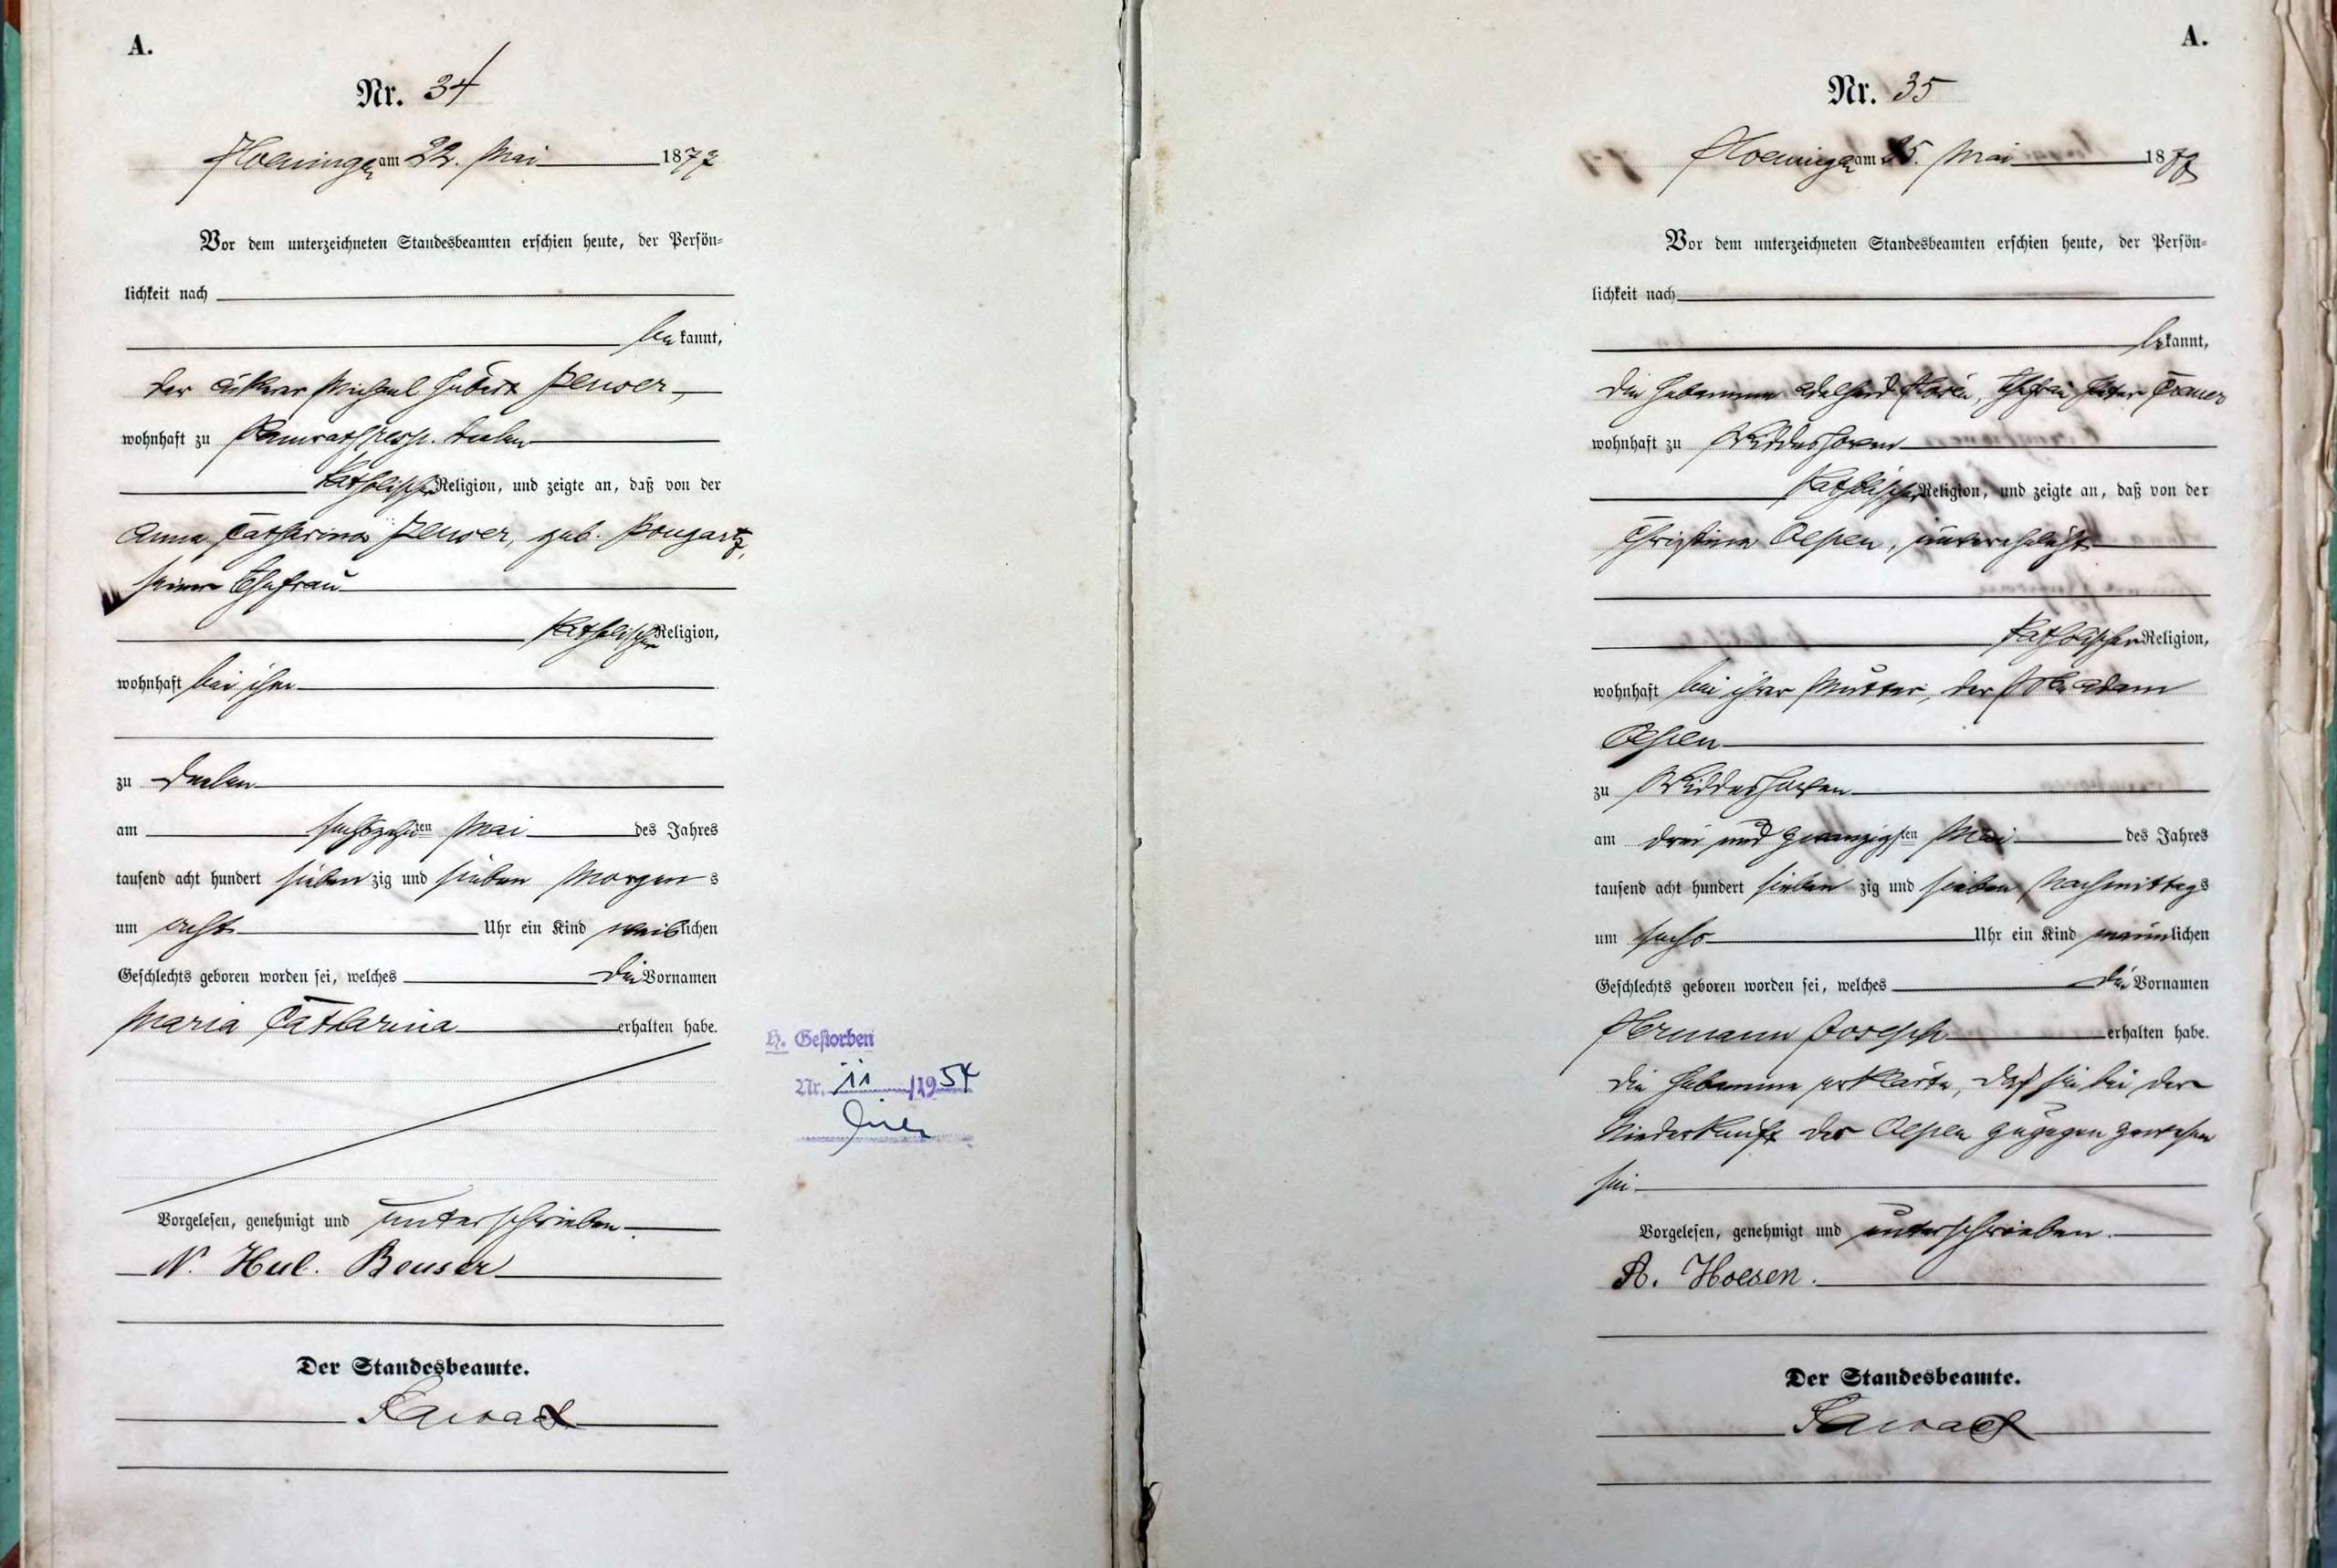 A.
Nr. 34
Hoeningen am 22. Mai 1877
Vor dem unterzeichneten Standesbeamten erschien heute, der Persön-
lichkeit nach
bekannt,
der Ackerer Michael Hubert
wohnhaft zu resp. Deelen
katholischer Religion, und zeigte an, daß von der
Anna Catharina geb. Bongartz,
seiner Ehefrau
katholischer Religion,
wohnhaft bei ihm
zu Deelen
am sechszehnten Mai des Jahres
tausend acht hundert siebenzig und sieben Morgens
um acht Uhr ein Kind weiblichen
Geschlechts geboren worden sei, welches die Vornamen
Maria Catharina erhalten habe.
H. Gestorben
Nr. 11 /1954
Vorgelesen, genehmigt und unterschrieben.
Hub.
Der Standesbeamte.
A.
Nr. 35
Hoeningen am 25. Mai 1877
Vor dem unterzeichneten Standesbeamten erschien heute, der Persön-
lichkeit nach
bekannt,
die Hebamme Adelheid Ehefrau Peter
wohnhaft zu Widdeshoven
katholischer Religion, und zeigte an, daß von der
Christina Oepen, unverehelicht
katholischer Religion,
wohnhaft bei ihrer Mutter, der Wwe Adam
Oepen
zu Widdeshoven
am drei und zwanzigsten Mai des Jahres
tausend acht hundert siebenzig und sieben Nachmittags
um sechs Uhr ein Kind männlichen
Geschlechts geboren worden sei, welches die Vornamen
Hermann Joseph erhalten habe.
Die Hebamme erklärte, daß sie bei der
Niederkunft der Oepen zugegen gewesen
sei
Vorgelesen, genehmigt und unterschrieben.
A. Hoesen.
Der Standesbeamte.